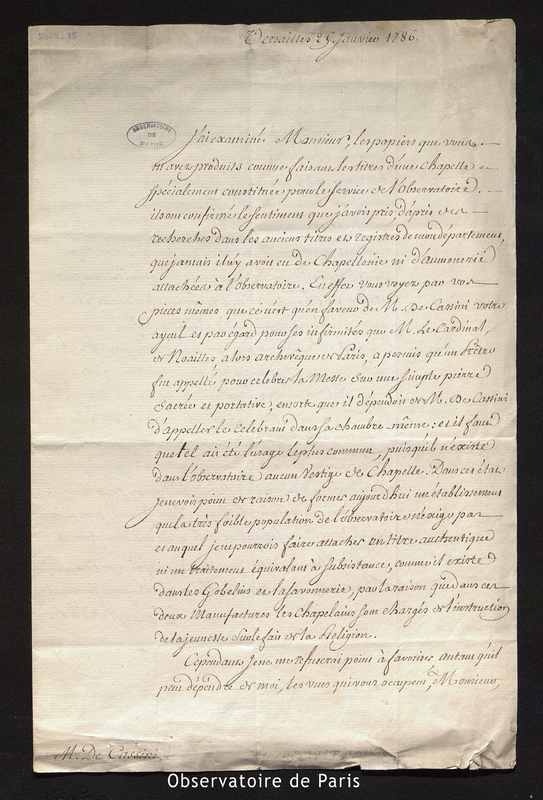 Versailles 25 Janvier 1786.
OBSERVATOIRE
DE
PARIS
J'ai examiné Monsieur, les papiers que vous
m'avez produits comme faisant les titres d'une Chapelle
spécialement constituée pour le service de l'Observatoire.
ils ont confirmé le sentiment que j'avois pris, d'après des
recherches dans les anciens titres et registres de mon département,
que jamais il n'y avoit eu de Chapellenie ni d'aumonerie
attachées à l'observatoire. En effet vous voyez par vos
pièces mêmes que ce n'est qu'en faveur de M. De Cassini votre
ayeul et par égard pour ses infirmités que M. Le Cardinal
de Noailles alors archevêque de Paris, a permis qu'un Prêtre
fut appellé pour celebrer la Messe sur une simple pierre
Sacrée et portative, ensorte que il dépendoit de M. De Cassini
d'appeller le Celebrant dans sa chambre même; et il faut
que tel ait été l'usage le plus commun, puisqu'il n'existe
dans l'observatoire aucun Vestige de Chapelle. Dans cet état
je ne vois point de raison de former aujourd'hui un établissement
que la très foible population de l'observatoire n'exige pas
et auquel je ne pourrois faire attacher un titre authentique
ni un traitement équivalent à subsistance, comme il existe
dans les Gobelins et la Savonnerie, par la raison que dans ces
deux Manufactures les chapelains sont chargés de l'instruction
de la jeunesse sur le fait de la Religion.
Cependant Je ne me refuserai point à favoriser autant qu'il
peut dépendre de moi, les vues qui vous occupent, Monsieur,
M. De Cassini
Observatoire de Paris